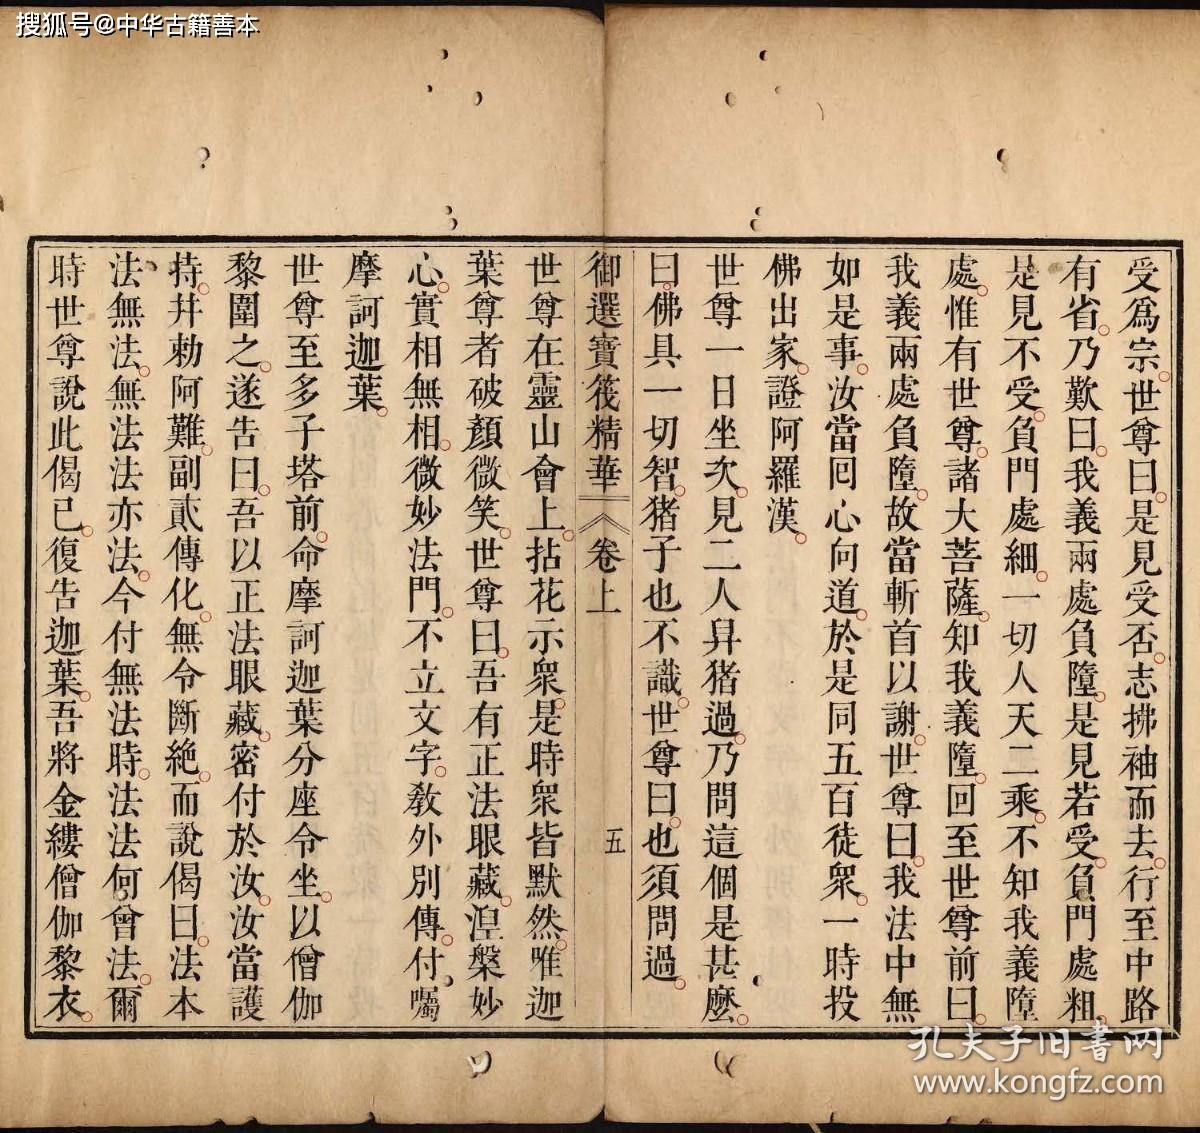 搜狐号@中华古籍善本
受爲宗。世尊曰。是見受否。志拂袖而去。行至中路
有省。乃歎曰。我義兩處負隨。是見若受。負門處粗。
是見不受。負門處細。一切人天二乘。不知我義隨
處。惟有世尊。諸大菩薩。知我義隨。回至世尊前曰。
我義兩處負隨。故當斬首以謝。世尊曰。我法中無
如是事。汝當囘心向道。於是同五百徒眾。一時投
佛出家。證阿羅漢。
世尊一日坐次。見二人舁猪過。乃問這個是甚麼。
曰。佛具一切智。猪子也不識。世尊曰。也須問過。
御選寶筏精華 卷上 五
世尊在靈山會上。拈花示眾。是時眾皆默然。唯迦
葉尊者破顏微笑。世尊曰。吾有正法眼藏。湼槃妙
心。實相無相。微妙法門。不立文字。教外別傳。付囑
摩訶迦葉。
世尊至多子塔前。命摩訶迦葉分座令坐。以僧伽
黎圍之。遂告曰。吾以正法眼藏。密付於汝。汝當護
持。幷勅阿難。副貳傳化。無令斷絶。而說偈曰。法本
法無法。無法法亦法。今付無法時。法法何曾法。爾
時世尊說此偈已。復告迦葉。吾將金縷僧伽黎衣。
孔夫子旧书网
www.kongfz.com